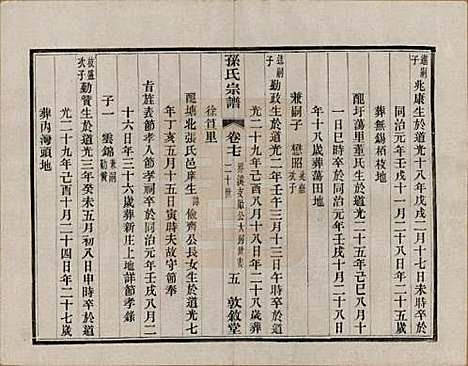 進嗣子 兆康生於道光十八年戊戌二月十七日未時卒於
同治元年壬戌十月二十八日年二十五歲
葬無錫栢枝地
配圩蕩里華氏生於道光二十五年乙巳八月
一日巳時卒於同治元年壬戌十月二十八日
年十八歲葬蕩田地
兼嗣子 懋昭 兆康次子
勤政生於道光二年三月十三日午時卒於
光二十九年己酉十月二十八日年二十八歲葬
孫氏宗譜 卷七 二十世 五 敦敘堂
徐置里
配塘北張氏邑庠生 儉齊公長女生於道光七
年丁亥五月十五日寅時夫故守節奉
旨旌表節孝入節孝祠卒於同治元年壬戌八月二
十六日年三十六歲葬新庄上地詳節孝錄
子一 雲錦 兼嗣勤質
故盛次子 勤質生於道光三年癸未五月初八日申時卒於道
光二十九年己酉十月二十四日年二十七歲
葬內灣頭地